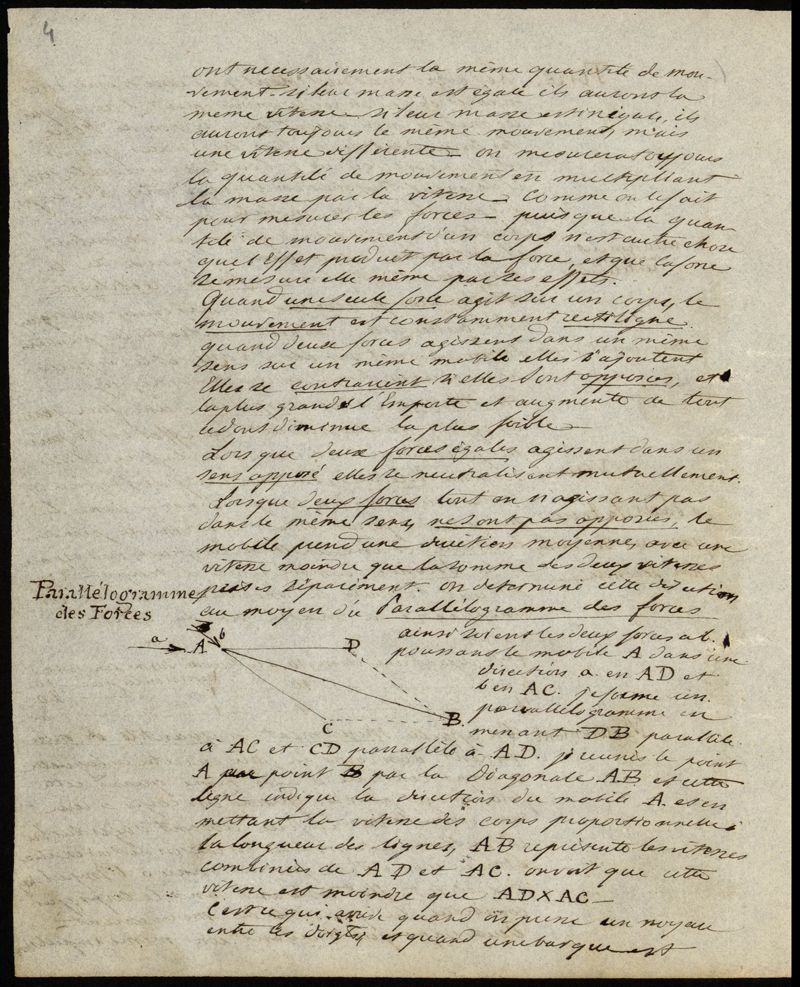 4
ont necessairement la même quantité de mou-
vement. si leur masse est égale ils auront la
meme vitesse si leur masse est inégale, ils
auront toujours le même mouvement, mais
une vitesse différente — on mesurera toujours
la quantité de mouvement en multipliant
la masse par la vitesse — comme on le fait
pour mesurer les forces — puis que la quan
tité de mouvement d'un corps n'est autre chose
que l'effet produit par la force, et que la force
se mesure elle même par ses effets.
Quand une seule force agit sur un corps, le
mouvement est constamment rectiligne.
quand deux forces agissent dans un même
sens sur un même mobile elles s'ajoutent
Elles se contrarient si elles sont opposées, et
la plus grande l'emporte et augmente de tout
ce dont diminue la plus foible —
Lors que deux forces égales agissent dans un
sens opposé elles se neutralisent mutuellement.
Lorsque deux forces tout en n'agissant pas
dans le même sens, ne sont pas opposées, le
mobile prend une direction moyenne, avec une
vitesse moindre que la somme des deux vitesses
prises séparément. on determine cette direction
au moyen du Parallélogramme des forces
Parallélogramme
des Forces
ainsi soient les deux forces a b.
poussant le mobile A dans une
direction a en AD et
b en AC. je forme un
parallélogramme en
menant DB parallèle
a
b
A
D
C
B
à AC et CD parrallèle à AD. je réunis le point
A point B par la Diagonale AB et cette
ligne indique la direction du mobile A. et en
mettant la vitesse des corps proportionnelle à
la longueur des lignes, AB représente les vitesses
combinées de AD et AC. on voit que cette
vitesse est moindre que AD X AC —
C'est ce qui arrive quand on presse un noyau
entre les doigts, et quand une barque est